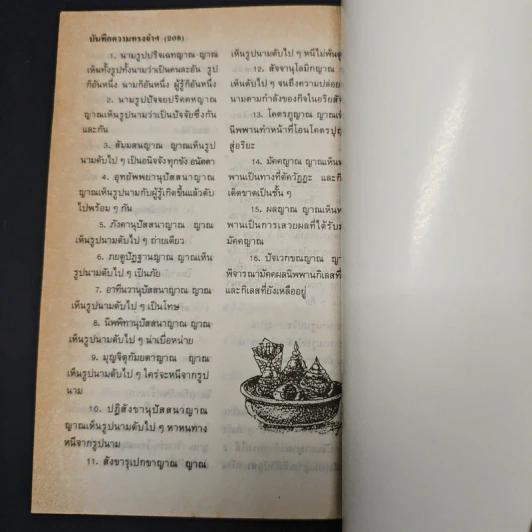 บันทึกความทรงจำฯ (208)
1. นามรูปปริจเฉทญาณ ญาณ
เห็นทั้งรูปทั้งนามว่าเป็นคนละอัน รูป
ก็อันหนึ่ง นามก็อันหนึ่ง ผู้รู้ก็อันหนึ่ง
2. นามรูปปัจจยปริคคหญาณ
ญาณเห็นรูปนามว่าเป็นปัจจัยซึ่งกัน
และกัน
3. สัมมสนญาณ ญาณเห็นรูป
นามดับไป ๆ เป็นอนิจจัง ทุกขัง อนัตตา
4. อุทยัพพยานุปัสสนาญาณ
ญาณเห็นรูปนามกับผู้รู้เกิดขึ้นแล้วดับ
ไปพร้อม ๆ กัน
5. ภังคานุปัสสนาญาณ ญาณ
เห็นรูปนามดับไป ๆ ถ่ายเดียว
6. ภยตูปัฏฐานญาณ ญาณเห็น
รูปนามดับไป ๆ เป็นภัย
7. อาทีนวานุปัสสนาญาณ ญาณ
เห็นรูปนามดับไป ๆ เป็นโทษ
8. นิพพิทานุปัสสนาญาณ ญาณ
เห็นรูปนามดับไป ๆ น่าเบื่อหน่าย
9. มุญจิตุกัมยตาญาณ ญาณ
เห็นรูปนามดับไป ๆ ใคร่จะหนีจากรูป
นาม
10. ปฏิสังขานุปัสสนาญาณ
ญาณเห็นรูปนามดับไป ๆ หาหนทาง
หนีจากรูปนาม
11. สังขารุเปกขาญาณ ญาณ
เห็นรูปนามดับไป ๆ หนีไม่พ้น
12. สัจจานุโลมิกญาณ
เห็นดับไป ๆ จนถึงความปล่อย
นามตามกำลังของกิจในอริยสัจ
13. โคตรภูญาณ ญาณ
นิพพานทำหน้าที่โอนโคตร
สู่อริยะ
14. มัคคญาณ ญาณเห็น
พานเป็นทางที่ตัดวัฏฏะ
เด็ดขาดเป็นชั้น ๆ
15. ผลญาณ ญาณเห็น
พานเป็นการเสวยผลที่ได้รับ
มัคคญาณ
16. ปัจเวกขณญาณ
พิจารณามัคคผลนิพพานกิเลสที่
และกิเลสที่ยังเหลืออยู่